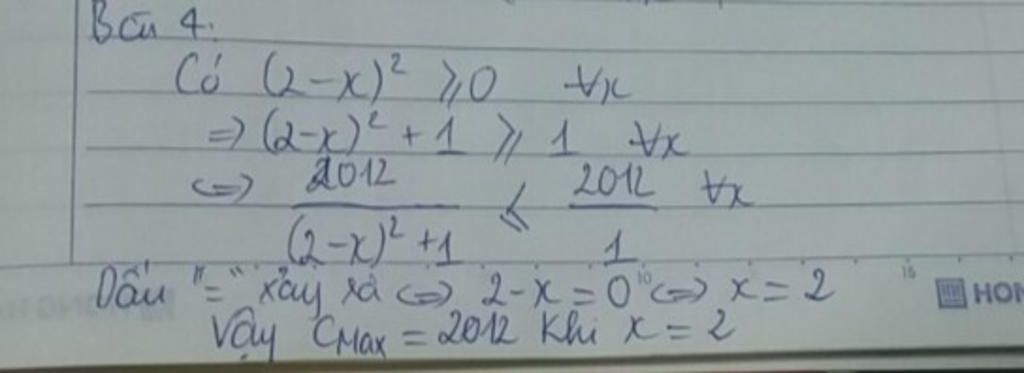 Bài 4:
Có (2-x)² ≥ 0 ∀x
=> (2-x)² + 1 ≥ 1 ∀x
<=> 2012 / ((2-x)² + 1) ≤ 2012 / 1 ∀x
Dấu "=" xảy ra <=> 2-x = 0 <=> x = 2
Vậy CMax = 2012 khi x = 2
10
15
HON